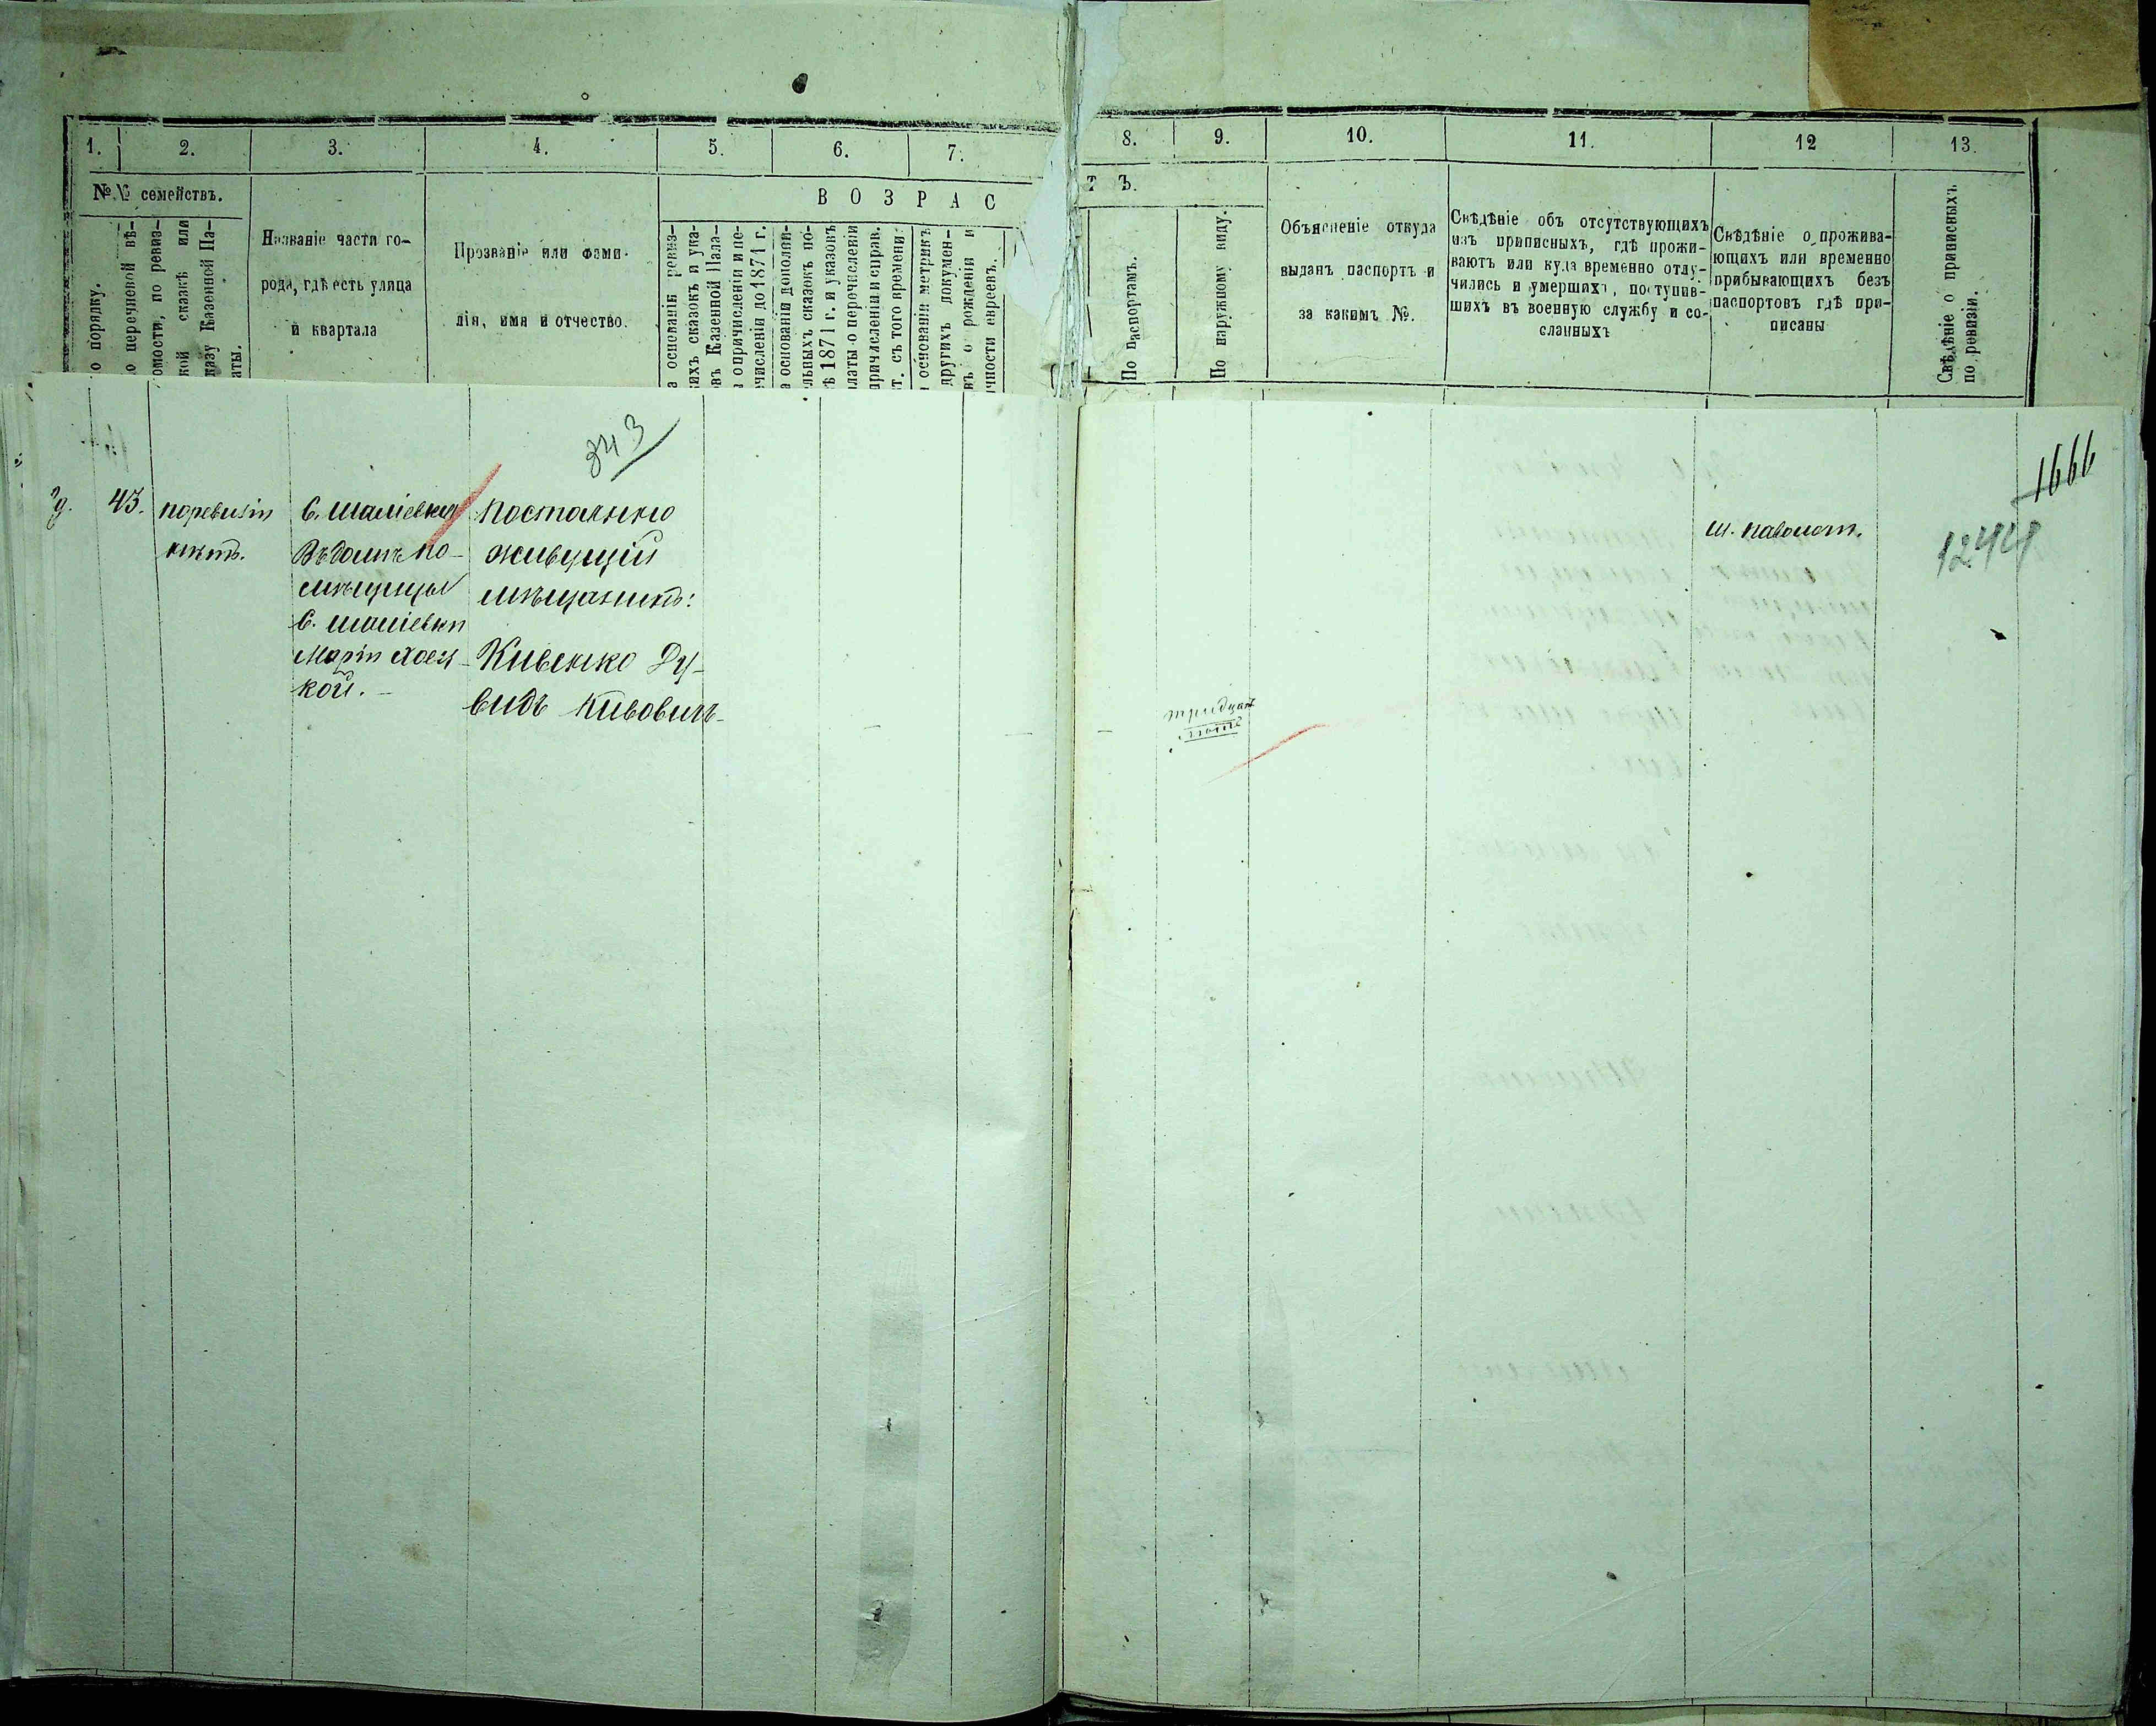 1.
2.
3.
4.
5.
6.
7.
8.
9.
10.
11.
12
13.
№№ семействъ.
о порядку.
о перечневой вѣ-
омости, по ревиз-
кой сказкѣ или
казу Казенной Па-
аты.
Названіе части го-
рода, гдѣ есть улица
и квартала
Прозваніе или фами-
лія, имя и отчество.
ВОЗРАС
а основаніи ревиз-
ихъ сказокъ и ука-
въ Казенной Пала-
о причисленіи и пе-
численіи до 1871 г.
а основаніи дополни-
льныхъ сказокъ по-
ѣ 1871 г. и указовъ
латы о перечисленіи
причисленіи и справ.
т. съ того времени.
основаніи метрикъ
другихъ докумен-
въ о рожденіи и
чности евреевъ.
ТЪ.
По паспортамъ.
По наружному виду.
Объясненіе откуда
выданъ паспортъ и
за какимъ №.
Свѣдѣніе объ отсутствующихъ
изъ приписныхъ, гдѣ прожи-
ваютъ или куда временно отлу-
чились и умершихъ, поступив-
шихъ въ военную службу и со-
сланныхъ
Свѣдѣніе о прожива-
ющихъ или временно
прибывающихъ безъ
паспортовъ гдѣ при-
писаны
Свѣдѣніе о приписныхъ
по ревизіи.
343
43.
поревизіи
нѣтъ.
С. Шаліевки
Въ домѣ по-
мѣщицы
С. Шаліевки
Маріи
кой.
Постоянно
живущій
мѣщанинъ:
Кивенко Ду-
видъ Кивовичъ
тридцать
лѣтъ
м. Паволоч.
1666
1244